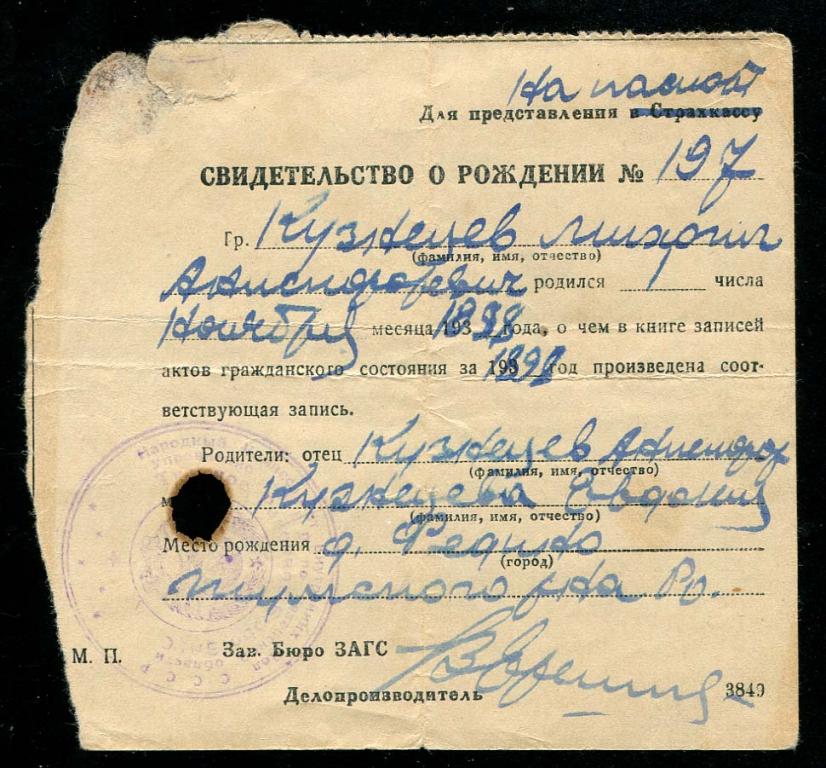 На паспорт
Для представления в Страхкассу
СВИДЕТЕЛЬСТВО О РОЖДЕНИИ № 197
Гр. Кузнецев Михаил
(фамилия, имя, отчество)
Анисифорович родился 1 числа
Ноября месяца 193 1898 года, о чем в книге записей
актов гражданского состояния за 193 1898 год произведена соот-
ветствующая запись.
Родители: отец Кузнецев Анисифор
(фамилия, имя, отчество)
Кузнецева Евдокия
(фамилия, имя, отчество)
Место рождения д. Федино
(город)
р/на
М. П. Зав. Бюро ЗАГС
Делопроизводитель 3849
Народный
СССР
области
ЗАГС